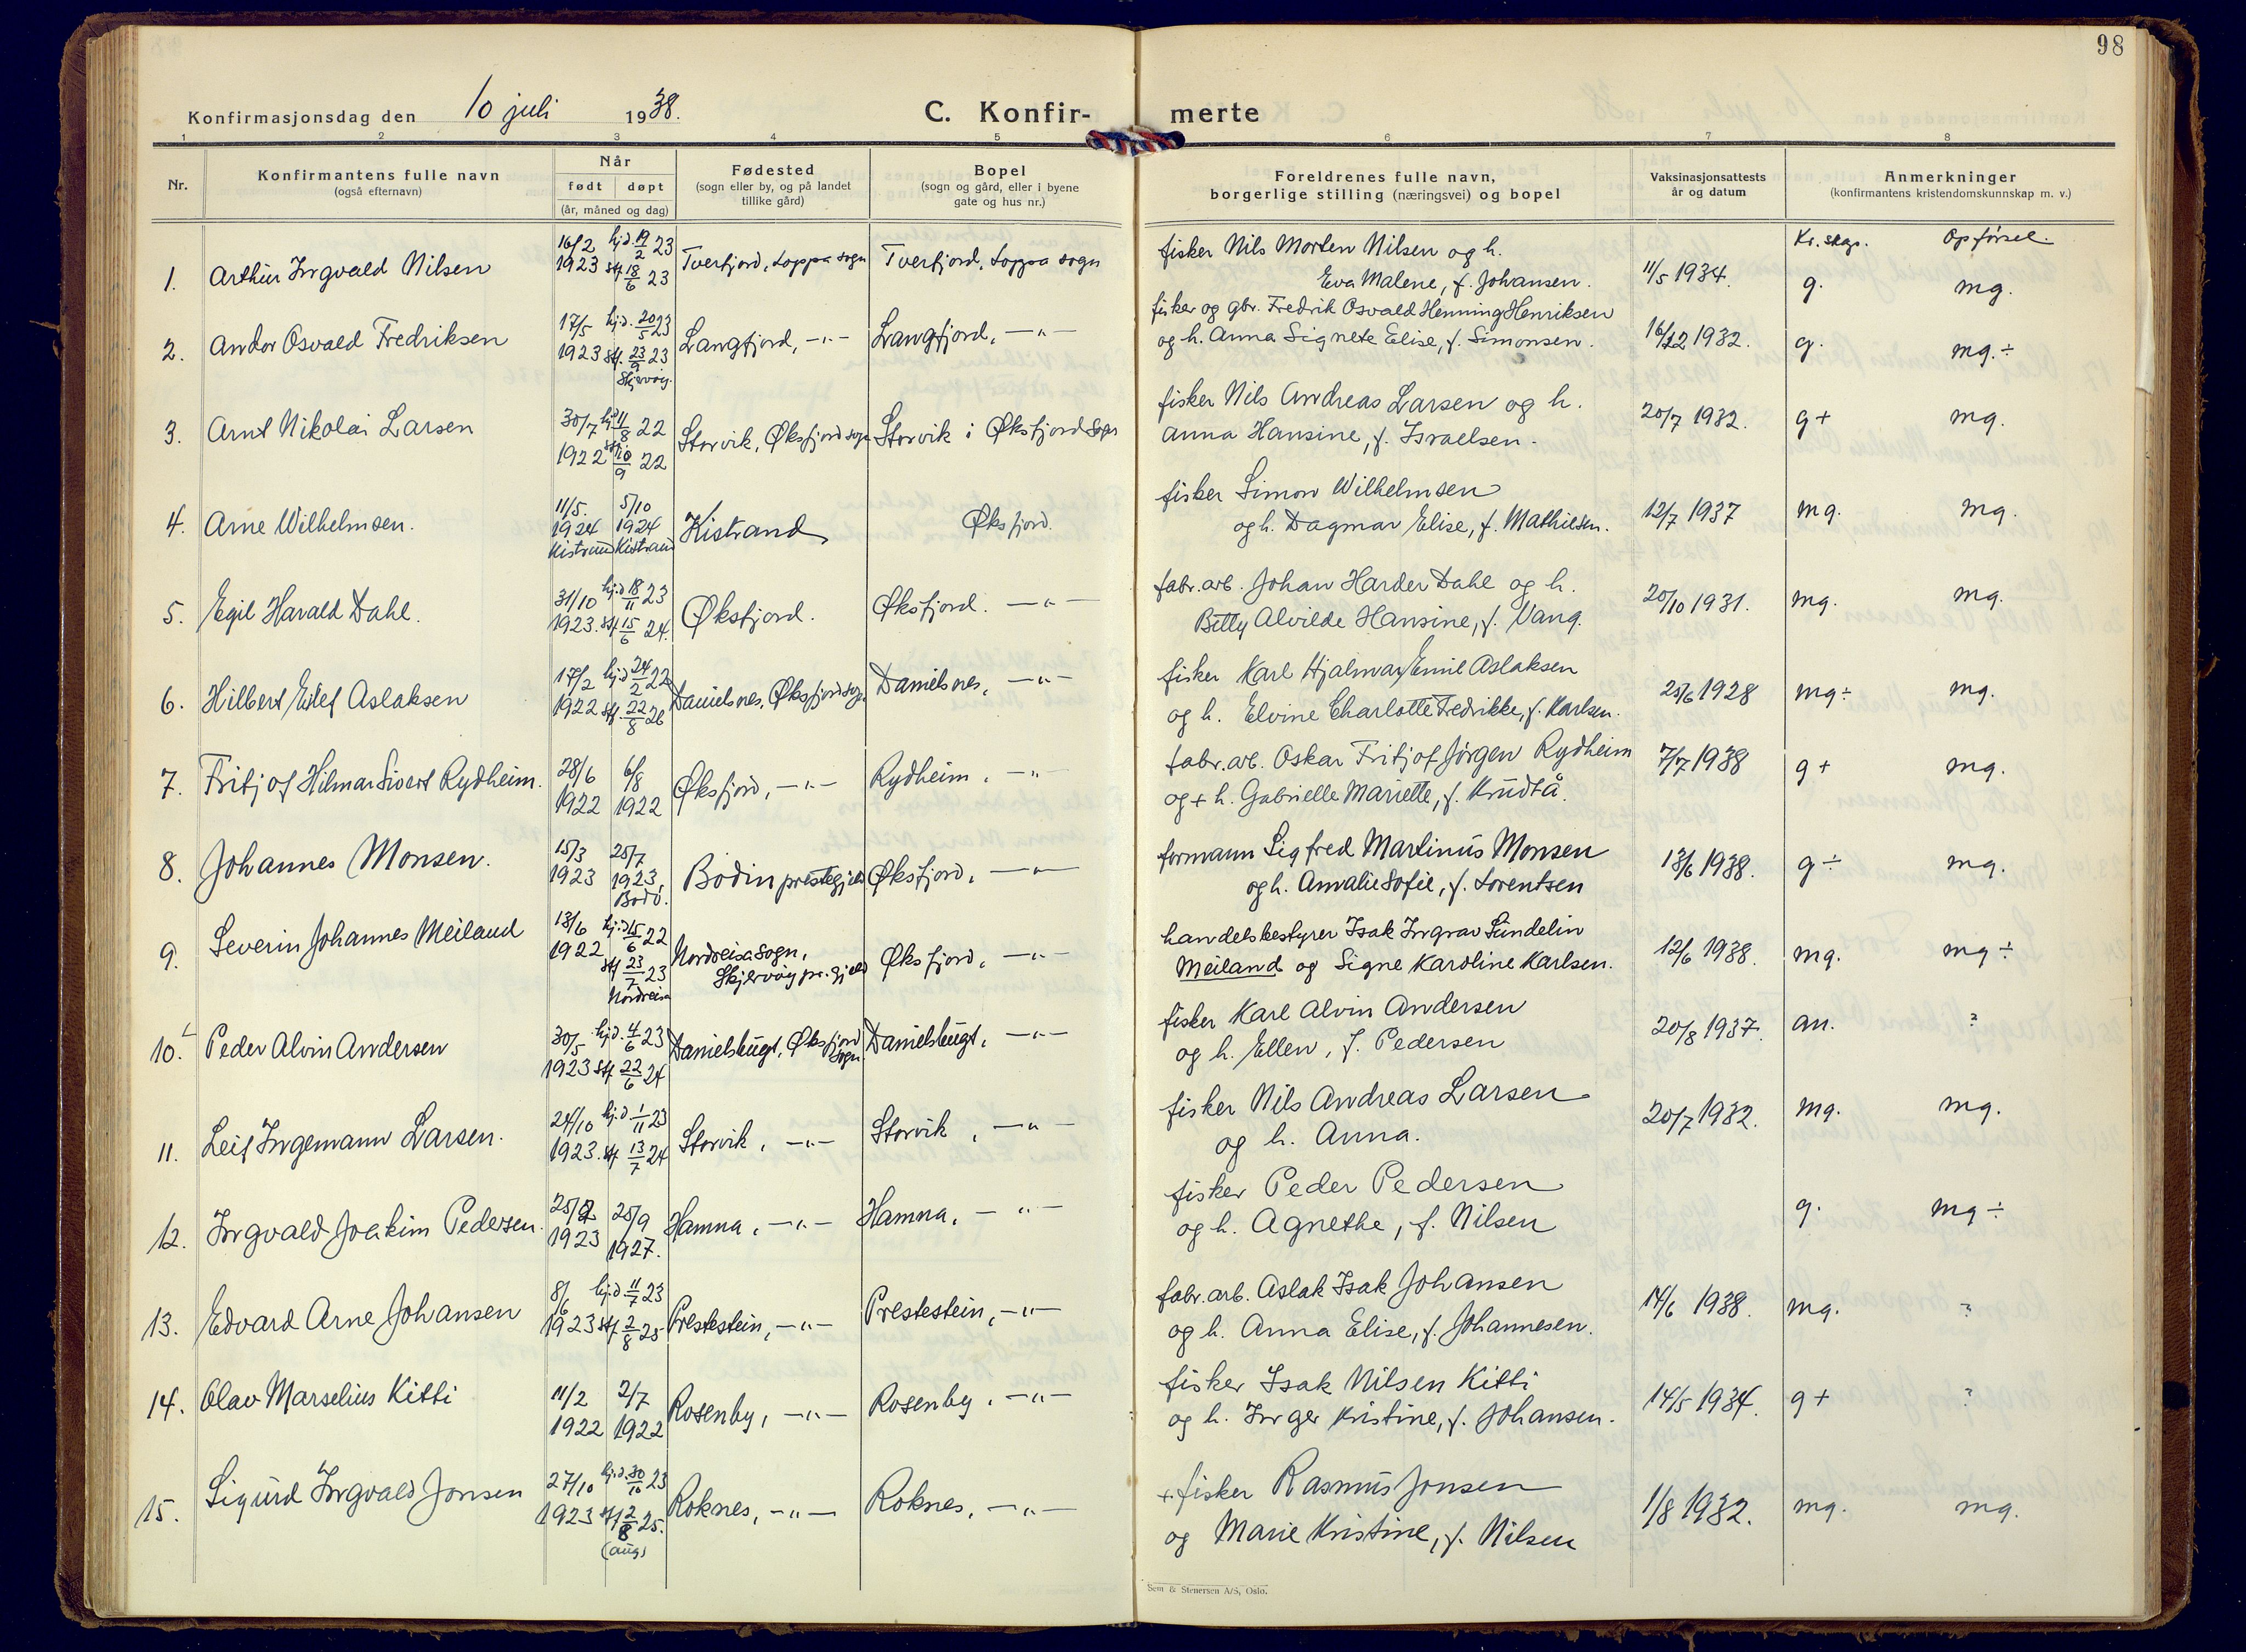 98
Konfirmasjonsdag den 10 juli 1938.
C. Konfir-merte
1 2 3 4 5 6 7 8
Nr.
Konfirmantens fulle navn
(også efternavn)
Når
født døpt
(år, måned og dag)
Fødested
(sogn eller by, og på landet
tillike gård)
Bopel
(sogn og gård, eller i byene
gate og hus nr.)
Foreldrenes fulle navn,
borgerlige stilling (næringsvei) og bopel
Vaksinasjonsattests
år og datum
Anmerkninger
(konfirmantens kristendomskunnskap m. v.)
Kr. skap. Opførsel.
1. Arthur Ingvald Nilsen
16/2 1923
hj.d. 19/2 23
stf. 18/6 23
Tverfjord, Loppa sogn
Tverfjord, Loppa sogn
fisker Nils Morten Nilsen og h.
Eva Malene, f. Johansen.
11/5 1934.
g. mg.
2. Andor Osvald Fredriksen
17/5 1923
hj.d. 20/5 23
stf. 23/9 23
Skjervøy.
Langfjord, -"-
Langfjord, -"-
fisker og gbr. Fredrik Osvald Henning Henriksen
og h. Anna Signete Elise, f. Simonsen.
16/12 1932.
g. mg. ÷
3. Arnt Nikolai Larsen
30/7 1922
hj.d. 11/8 22
stf. 10/9 22
Storvik, Øksfjord sogn
Storvik i Øksfjord sogn
fisker Nils Andreas Larsen og h.
Anna Hansine, f. Israelsen.
20/7 1932.
g+ mg.
4. Arne Wilhelmsen.
11/5. 1924 Kistrand
5/10 1924 Kistrand
Kistrand
Øksfjord.
fisker Simon Wilhelmsen
og h. Dagmar Elise, f. Mathiesen.
12/7 1937
mg. mg.
5. Egil Harald Dahl.
31/10 1923.
hj.d 18/11 23
stf. 15/6 24.
Øksfjord.
Øksfjord. -"-
fabr. arb. Johan Harder Dahl og h.
Betty Alvilde Hansine, f. Vang.
20/10 1931.
mg. mg.
6. Hilbert Eilef Aslaksen
17/2 1922
hj.d 24/2 22
stf. 22/8 26
Danielsnes, Øksfjord sogn
Danielsnes, -"-
fisker Karl Hjalmar Emil Aslaksen
og h. Elvine Charlotte Fedrikke, f. Karlsen.
25/6 1928
mg÷ mg.
7. Fritjof Hilmar Sivert Rydheim.
28/6 1922
6/8 1922
Øksfjord, -"-
Rydheim, -"-
fabr. arb. Oskar Fritjof Jørgen Rydheim
og + h. Gabrielle Mariette, f. Krudtå.
7/7 1938
g+ mg.
8. Johannes Monsen.
15/3 1923
25/7 1923, Bodø.
Bodin prestegjeld
Øksfjord, -"-
formann Sigfred Martinus Monsen
og h. Amalie Sofie, f. Lorentsen
13/6 1938.
g÷ mg.
9. Severin Johannes Meiland
13/6 1922
hj.d 15/6 22
stf 23/7 23
Nordreisa
Nordreisa sogn,
Skjervøy pr. gjeld
Øksfjord, -"-
handelsbestyrer Isak Ingvar Sundelin
Meiland og Signe Karoline Karlsen.
12/6 1938.
mg. mg÷
10. Peder Alvin Andersen
30/5 1923
hj.d. 4/6 23
stf 22/6 24
Danielsbugt, Øksfjord sogn
Danielsbugt, -"-
fisker Karl Alvin Andersen
og h. Ellen, f. Pedersen
20/8 1937.
an. ?
11. Leif Ingemann Larsen.
24/10 1923.
hj.d. 1/11 23
stf 13/7 24
Storvik, -"-
Storvik, -"-
fisker Nils Andreas Larsen
og h. Anna.
20/7 1932.
mg. mg.
12. Ingvald Joakim Pedersen.
1923
25/9 1927.
Hamna, -"-
Hamna, -"-
fisker Peder Pedersen
og h. Agnethe, f. Nilsen
g. mg÷
13. Edvard Arne Johansen
8/6 1923
hj.d 11/7 23
stf 2/8 25
Prestestein, -"-
Prestestein, -"-
fabr. arb. Aslak Isak Johansen
og h. Anna Elise, f. Johannesen.
14/6 1938.
mg. ?
14. Olav Marselius Kitti
11/2 1922
2/7 1922
Rosenby, -"-
Rosenby, -"-
fisker Isak Nilsen Kitti
og h. Inger Kristine, f. Johansen.
14/5 1934.
g+ ?
15. Sigurd Ingvald Jonsen
27/10 1923
hj.d. 30/10 23
stf 2/8 25.
(aug)
Roknes, -"-
Roknes, -"-
+ fisker Rasmus Jonsen
og Marie Kristine, f. Nilsen
1/8 1932.
mg. mg.
Sem & Stenersen A/S, Oslo.